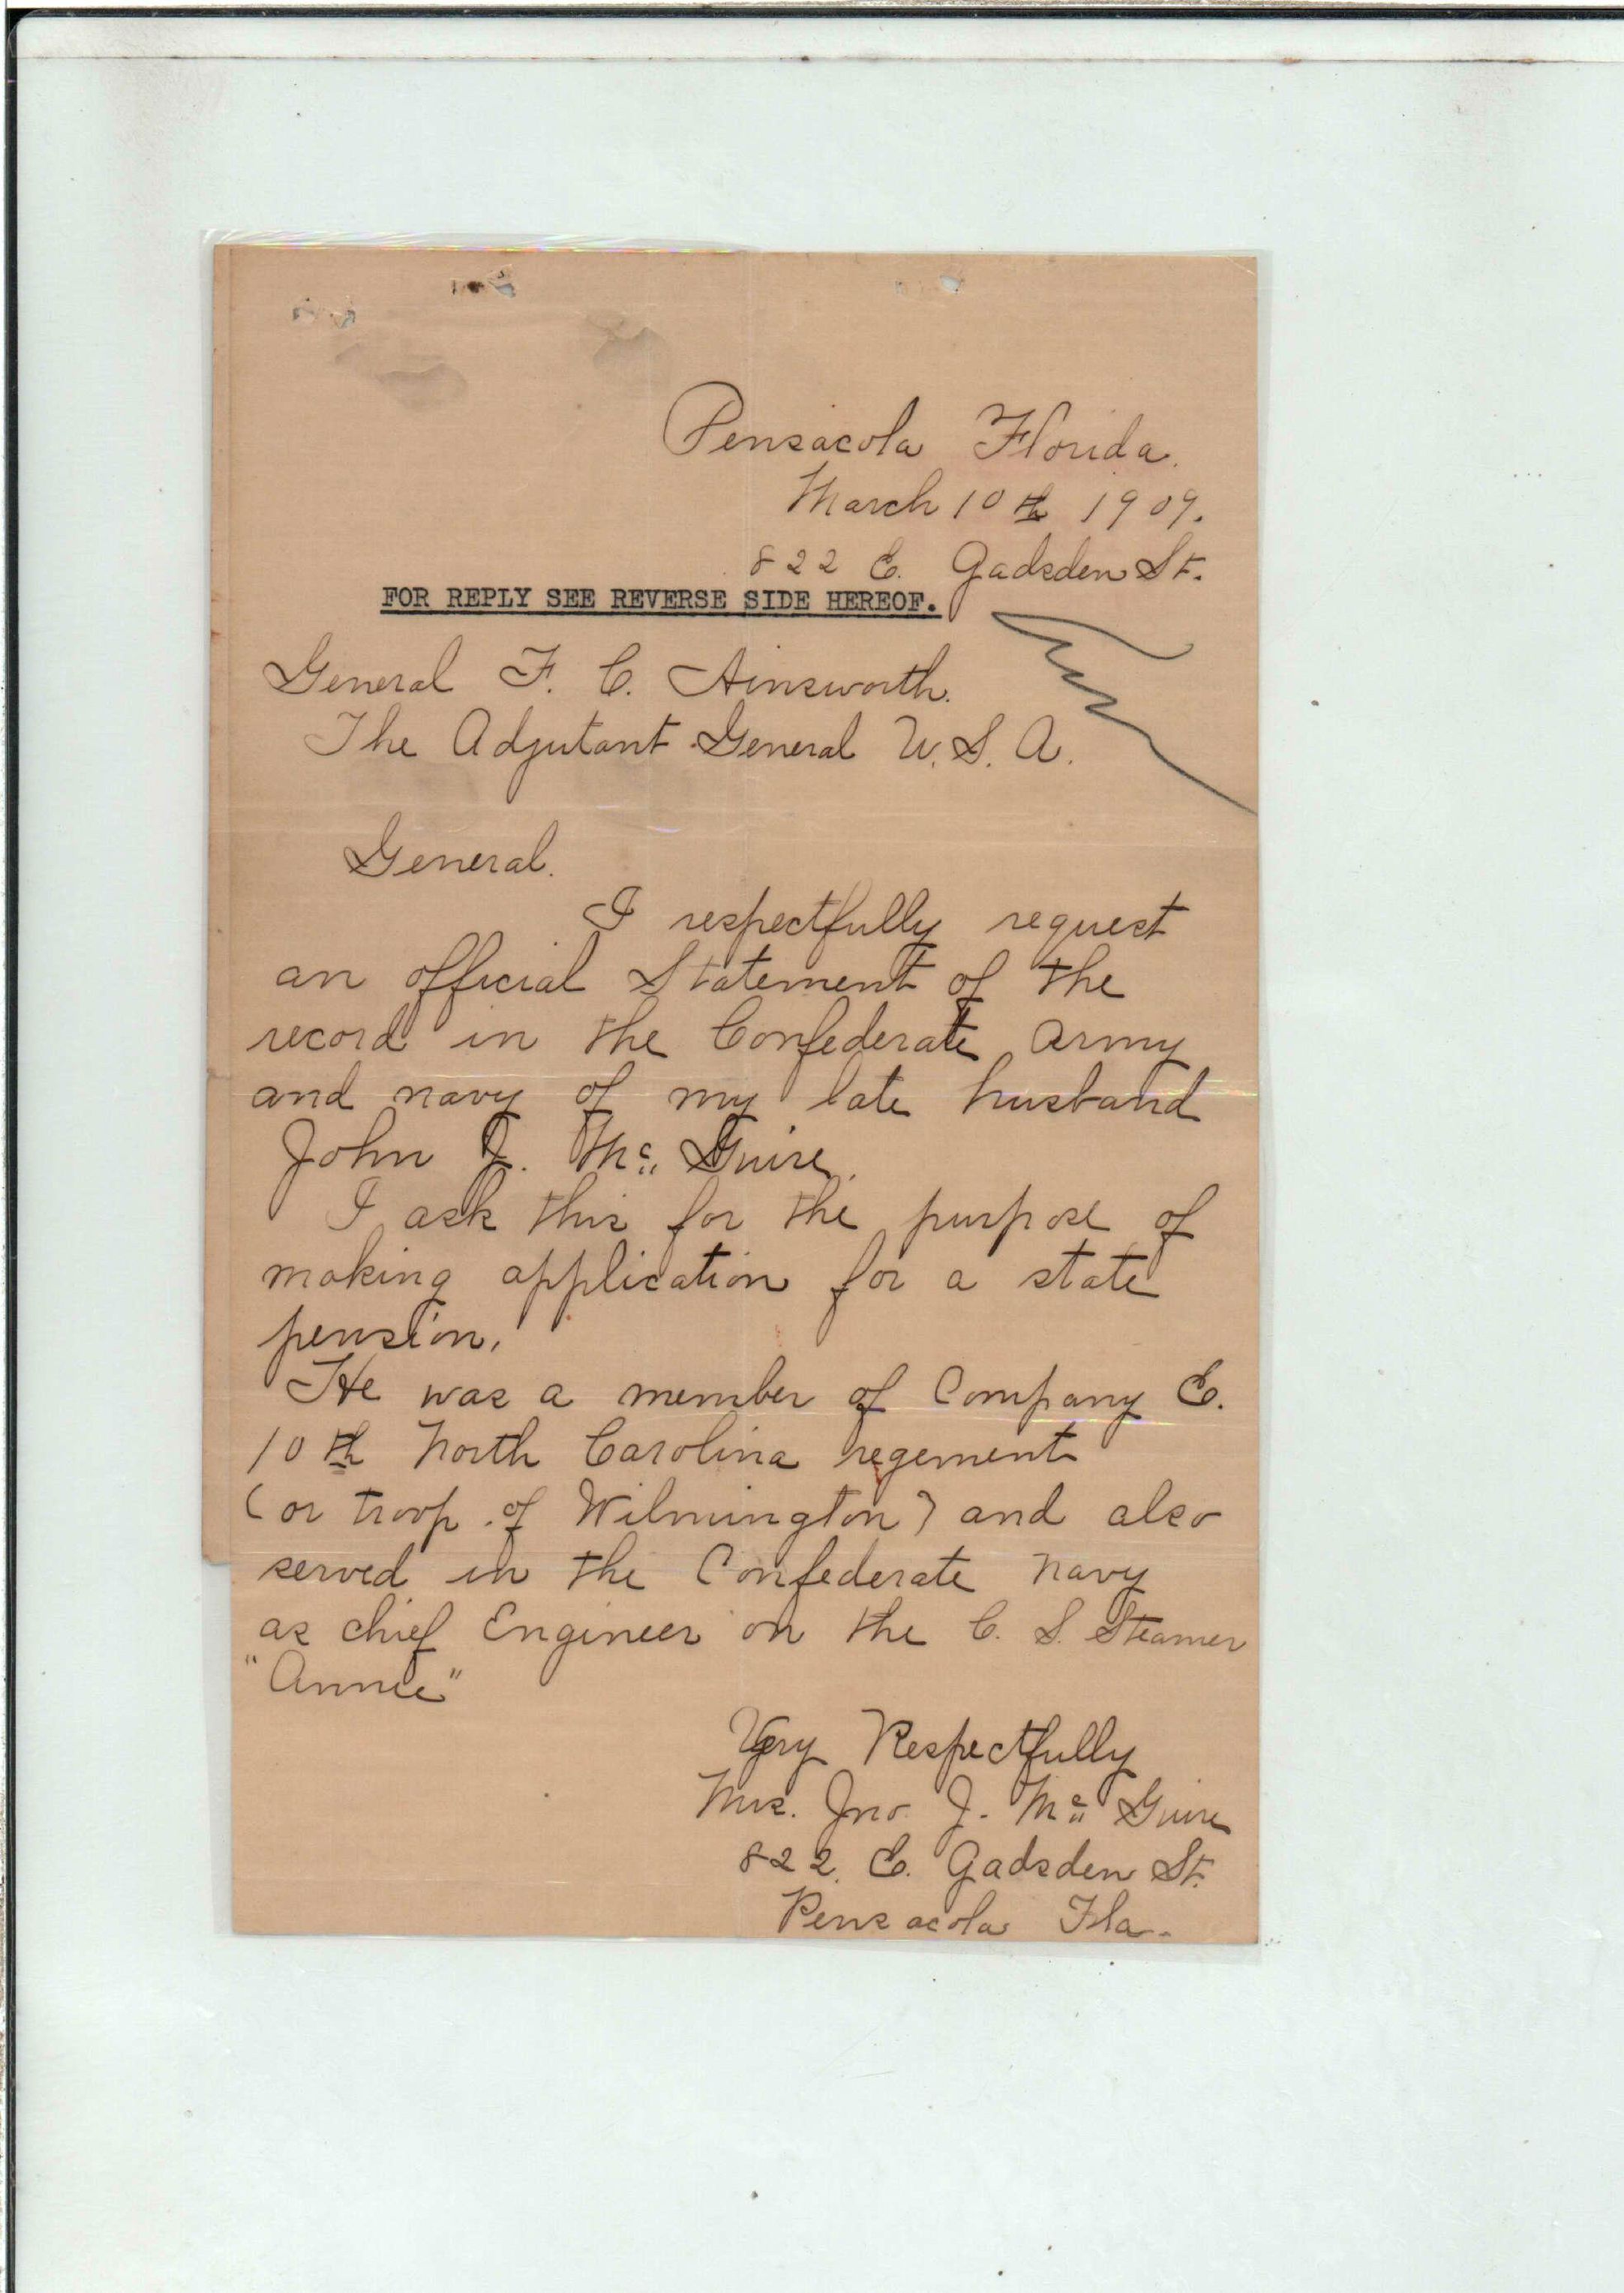 Pensacola Florida.
March 10th 1909.
822 E. Gadsden St.
FOR REPLY SEE REVERSE SIDE HEREOF.
General F. C. Ainsworth.
The Adjutant General U. S. A.
General.
I respectfully request
an official Statement of the
record in the Confederate Army
and navy of my late husband
John J. Mc Guire.
I ask this for the purpose of
making application for a state
pension.
He was a member of Company E.
10th North Carolina regement
(or troop of Wilmington) and also
served in the Confederate navy
as chief Engineer on the C. S. Steamer
"Annie"
Very Respectfully
Mrs. Jno. J. Mc Guire
822. E. Gadsden St.
Pensacola Fla.